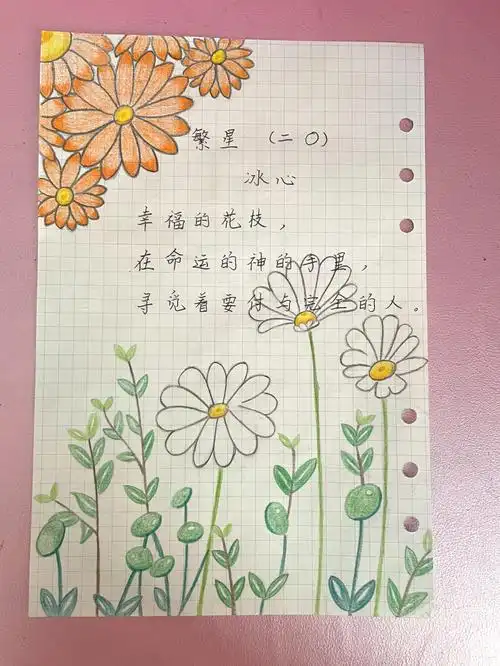 繁星 （二〇）
冰心
幸福的花枝，
在命运的神的手里，
寻觅着要付与完全的人。